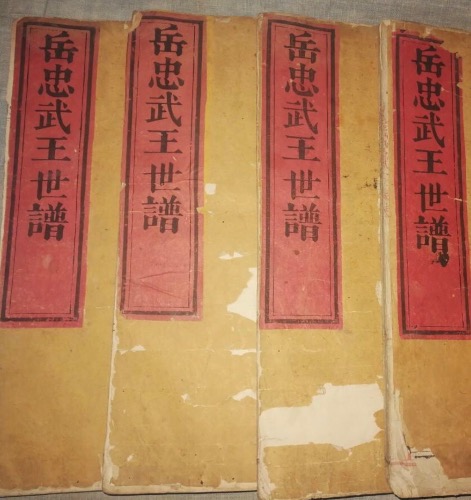 岳忠武王世譜
岳忠武王世譜
岳忠武王世譜
岳忠武王世譜